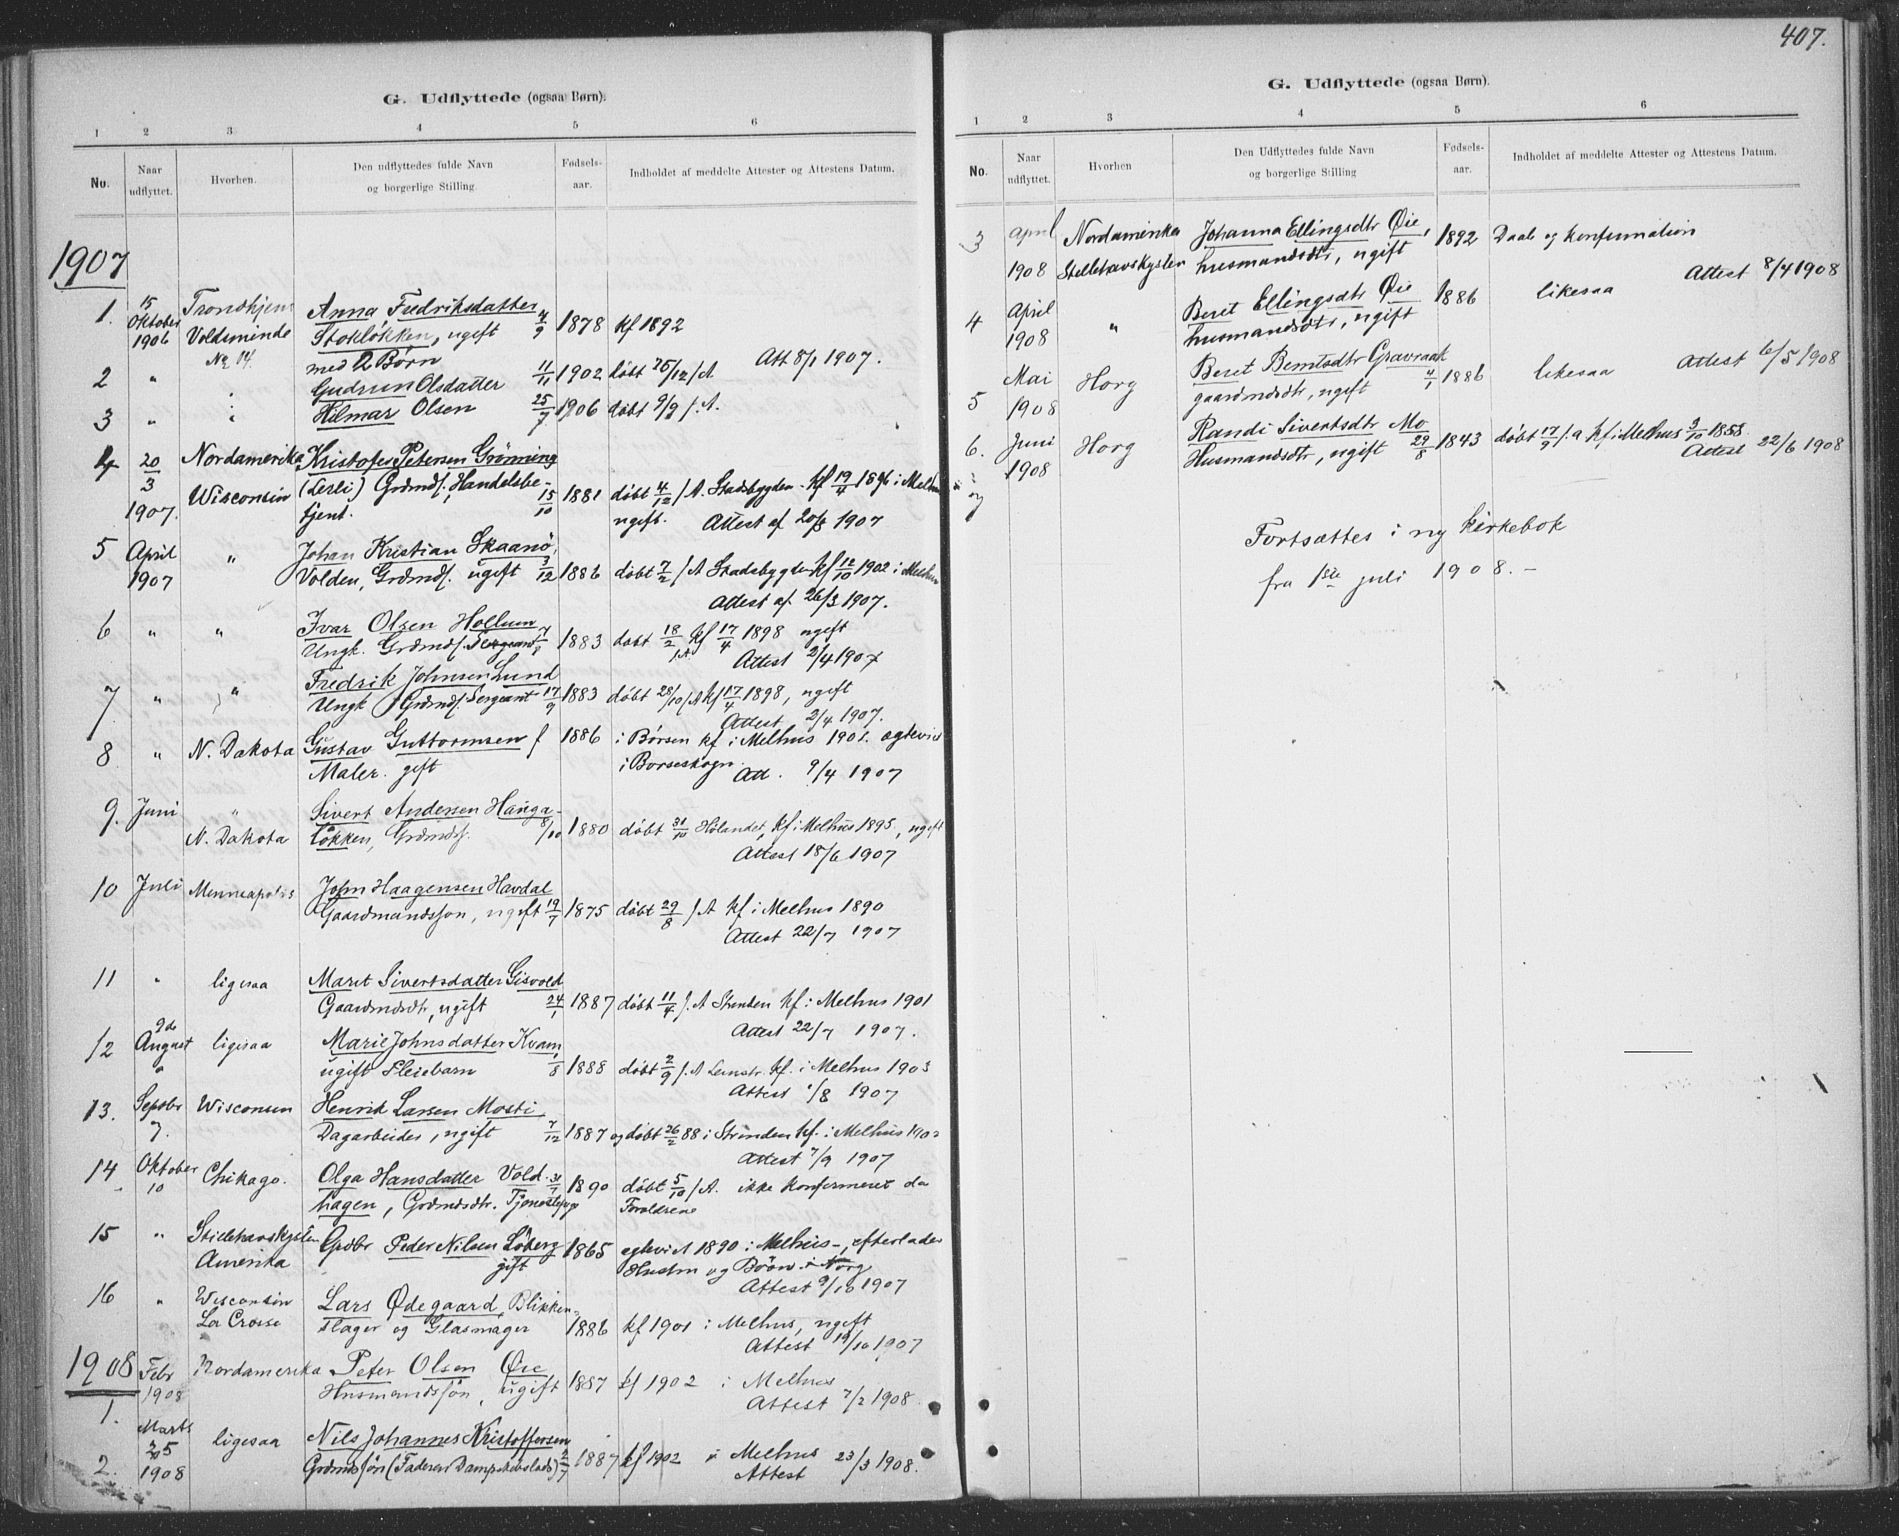 G. Udflyttede (ogsaa Børn).
1 2 3 4 5 6
No. Naar udflyttet. Hvorhen. Den udflyttedes fulde Navn og borgerlige Stilling. Fødselsaar. Indholdet af meddelte Attester og Attestens Datum.
1907
1. 15 Oktober 1906 Trondhjem Voldsminde No 14. Anna Fedriksdatter 4/9 1878 kf 1892
Stokløkken, ugift
med 2 Børn Att 8/1 1907.
2 " Gudrun Olsdatter 11/11 1902 døbt 25/12 f. A
3 " Hilmar Olsen 25/7 1906 døbt 9/9 f. A.
4 20/3 1907. Nordamerika Wisconsin Kristofer Petersen Grønning
(Lerli) Grdmdsf. Handelsbe- 15/10 1881 døbt 4/12 f A. Stadsbygden kf 19/4 1896 i Melhus
tjent. ugift. Attest af 20/3 1907
5 April 1907 " Johan Kristian Skaanø,
Volden, Grdmdsf. ugift 3/12 1886 døbt 7/2 f A Stadsbygden kf 12/10 1902 i Melhus
Attest af 26/3 1907.
6 " " Ivar Olsen Hollum
Ungk. Grdmdsf. Sergeant 1883 døbt 18/2 f A kf 17/4 1898 ugift
Attest 2/4 1907
7 " " Fredrik Johnsen Lund
Ungk Grdmdsf. Sergeant 17/9 1883 døbt 28/10 f A kf 17/4 1898, ugift
Attest 2/4 1907.
8 " N. Dakota Gustav Guttormsen f 1886 i Børsen kf i Melhus 1901. egteviet
Maler. gift i Børseskogn. Att. 9/4 1907
9. Juni " N. Dakota Sivert Andersen Hauga-
løkken, Grdmdsf. 8/10 1880 døbt 31/10 Hølandet, kf i Melhus 1895, ugift
Attest 18/6 1907
10 Juli Menneapolis John Haagensen Havdal
Gaardmandssøn, ugift 19/7 1875 døbt 29/8 f A kf i Melhus 1890
Attest 22/7 1907
11 " ligesaa Maret Sivertsdatter Gisvold
Gaardmdsdtr, ugift 24/1 1887 døbt 11/4 f. A Strinden kf i Melhus 1901
Attest 22/7 1907.
12 August ligesaa Marie Johnsdatter Kvam,
ugift Pleiebarn 1888 døbt 2/9 f. A kf. i Melhus 1903
Attest 1/8 1907
13. Septbr 7. Wisconsin Henrik Larsen Mosti
Dagarbeider, ugift 7/12 1887 og døbt 26/2 88 i Strinden kf. i Melhus 1902
Attest 7/9 1907
14 Oktober 10 Chikago. Olga Hansdatter Vold-
hagen, Grdmdsdtr. Tjenestepige 1890 døbt 5/10 f A. ikke konfirmeret da
Forældrene
15 " Stillehavskysten Amerika Gbr Peder Nilsen Løberg
gift 1865 egteviet 1890 i Melhus, efterlader
Hustru og Børn i Norg
Attest 9/10 1907
16 " Wisconsin La Crosse Lars Ødegaard, Blikken-
slager og Glasmager 1886 kf 1901 i Melhus, ugift
Attest 14/10 1907
1908
1. Febr 1908 Nordamerika Peter Olsen Øie
Husmandssøn, ugift 1887 kf 1902 i Melhus
Attest 7/2 1908.
2. Marts 1908 ligesaa Nils Johannes Kristoffersen
Grdmdssøn (Faderen Dampskibslods) 2/7 1887 kf 1902 i Melhus
Attest 23/3 1908.
407.
G. Udflyttede (ogsaa Børn).
1 2 3 4 5 6
No. Naar udflyttet. Hvorhen Den Udflyttedes fulde Navn og borgerlige Stilling Fødselsaar. Indholdet af meddelte Attester og Attestens Datum.
3 April 1908 Nordamerika Stillehavskysten Johanna Ellingsdtr Øie, 1892 Daab og konfirmation
husmandsdtr, ugift Attest 8/4 1908
4 April 1908 " Beret Ellingsdtr Øie 1886 likesaa
husmandsdtr, ugift
5 Mai 1908 Horg Beret Berntsdtr Gravraak
gaardmdsdtr, ugift 4/1 1886 likesaa Attest 6/5 1908
6. Juni 1908 Horg Randi Sivertsdtr Mo
Husmandsdtr, ugift 29/8 1843 døbt 17/9 s. a kf i Melhus 9/10 1858.
Attest 22/6 1908
Fortsættes i ny kirkebok
fra 1ste juli 1908. -